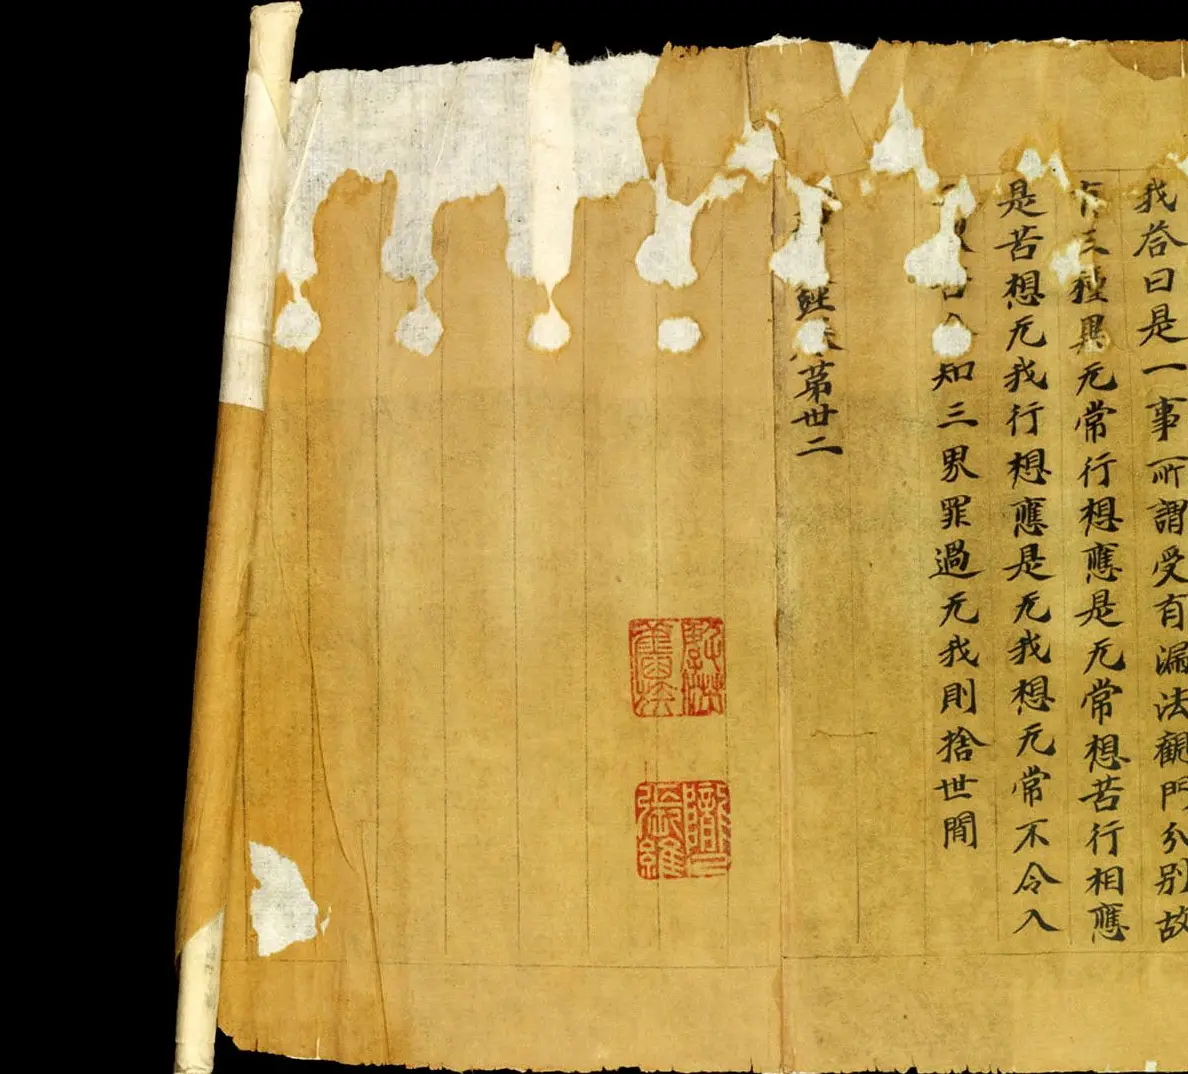 我荅曰是一事所謂受有漏法觀門分別故
三種異无常行想應是无常想苦行相應
是苦想无我行想應是无我想无常不令入
知三界罪過无我則捨世間
經苐卅二